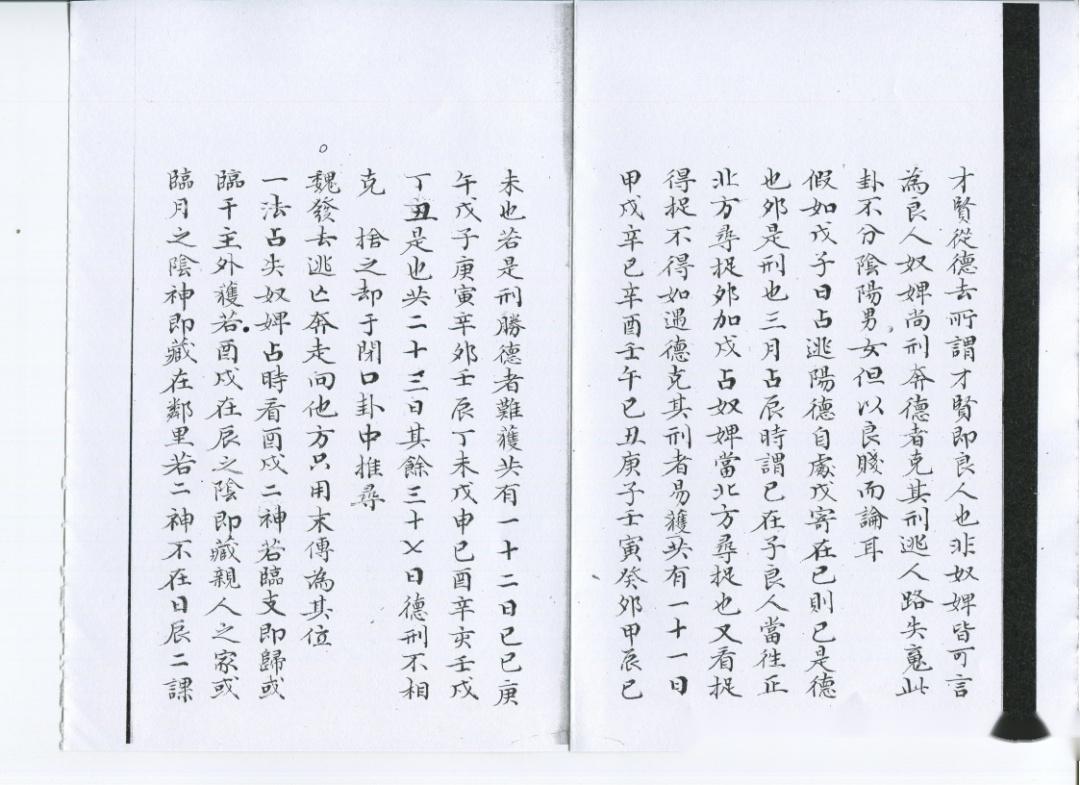 才賢從德去所謂才賢即良人也非奴婢皆可言
為良人奴婢尚刑奔德者克其刑逃人路失寃此
卦不分陰陽男女但以良賤而論耳
假如戊子日占逃陽德自處戊寄在巳則巳是德
也夘是刑也三月占辰時謂巳在子良人當往正
北方尋捉夘加戌占奴婢當北方尋捉也又看捉
得捉不得如遇德克其刑者易獲共有一十一日
甲戌辛巳辛酉壬午已丑庚子壬寅癸夘甲辰巳
未也若是刑勝德者難獲共有一十二日已巳庚
午戊子庚寅辛夘壬辰丁未戊申已酉辛亥壬戌
丁丑是也共二十三日其餘三十㐅日德刑不相
克 捨之却于閉口卦中推尋
魏發去逃亾奔走向他方只用末傳為其位
一法占失奴婢占時看酉戌二神若臨支即歸或
臨干主外獲若酉戌在辰之陰即藏親人之家或
臨月之陰神即藏在鄰里若二神不在日辰二課